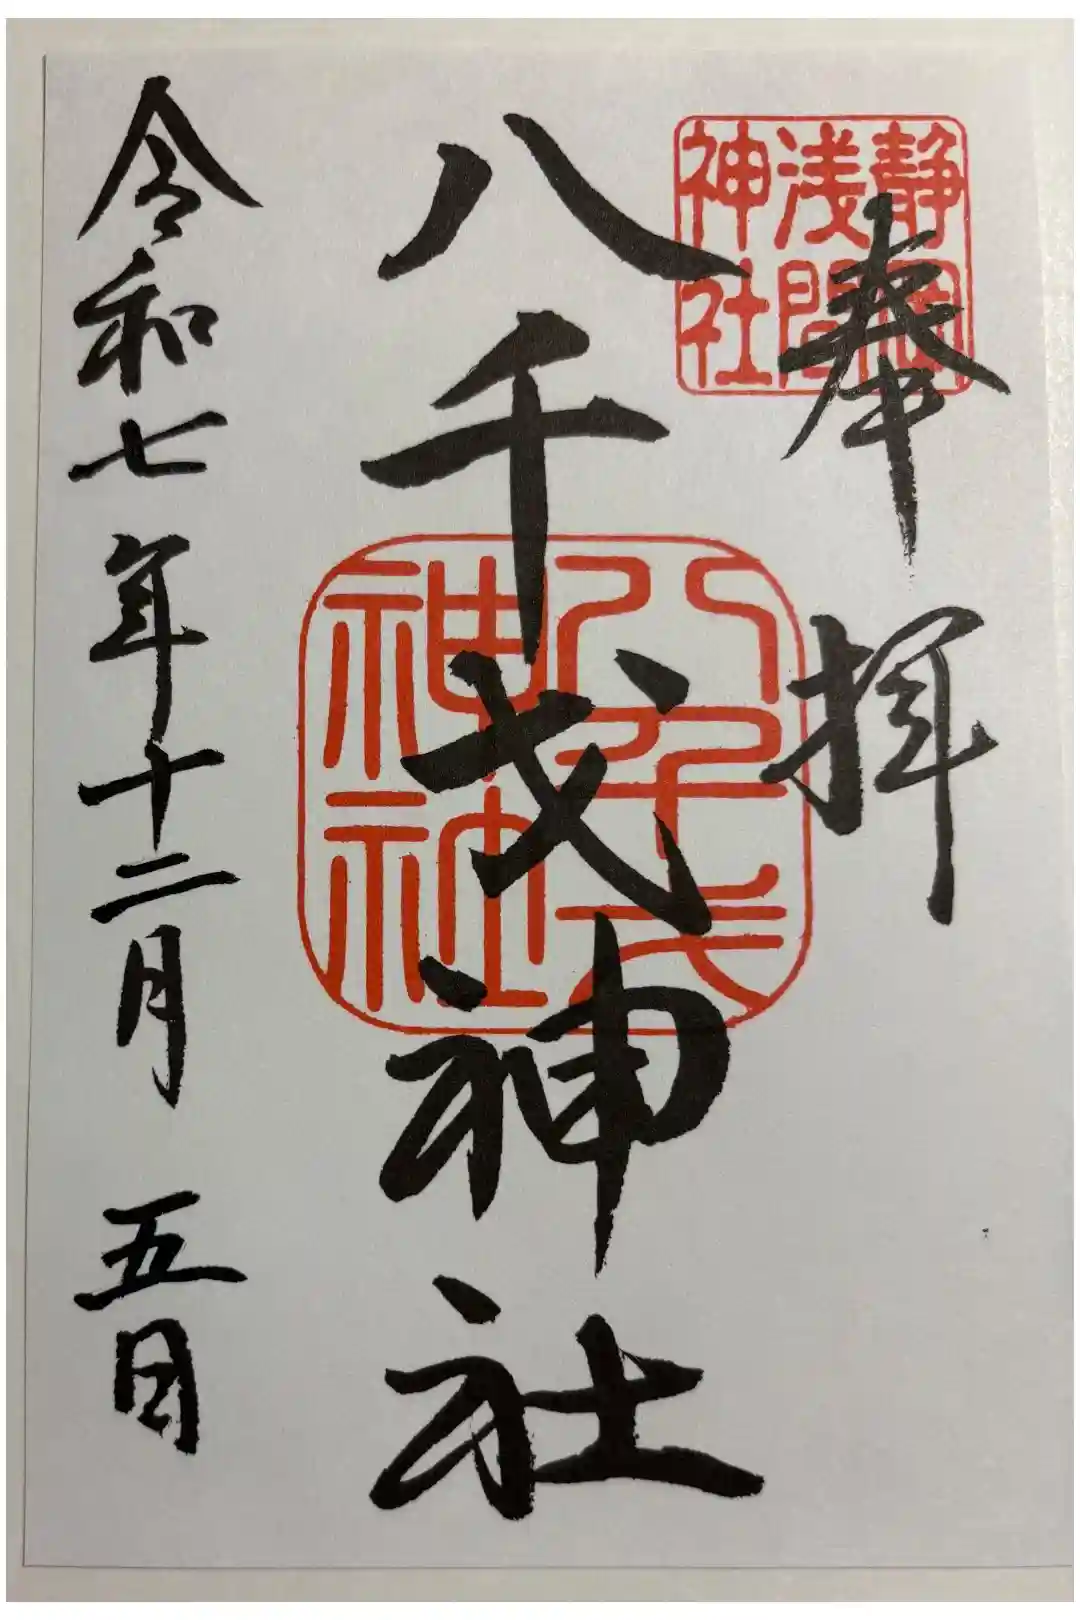 奉拝
静岡
浅間
神社
八千戈神社
八千戈
神社
令和七年十二月五日